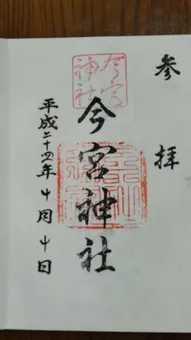 参拝
今宮
神社
今宮神社
平成二十四年十月十日